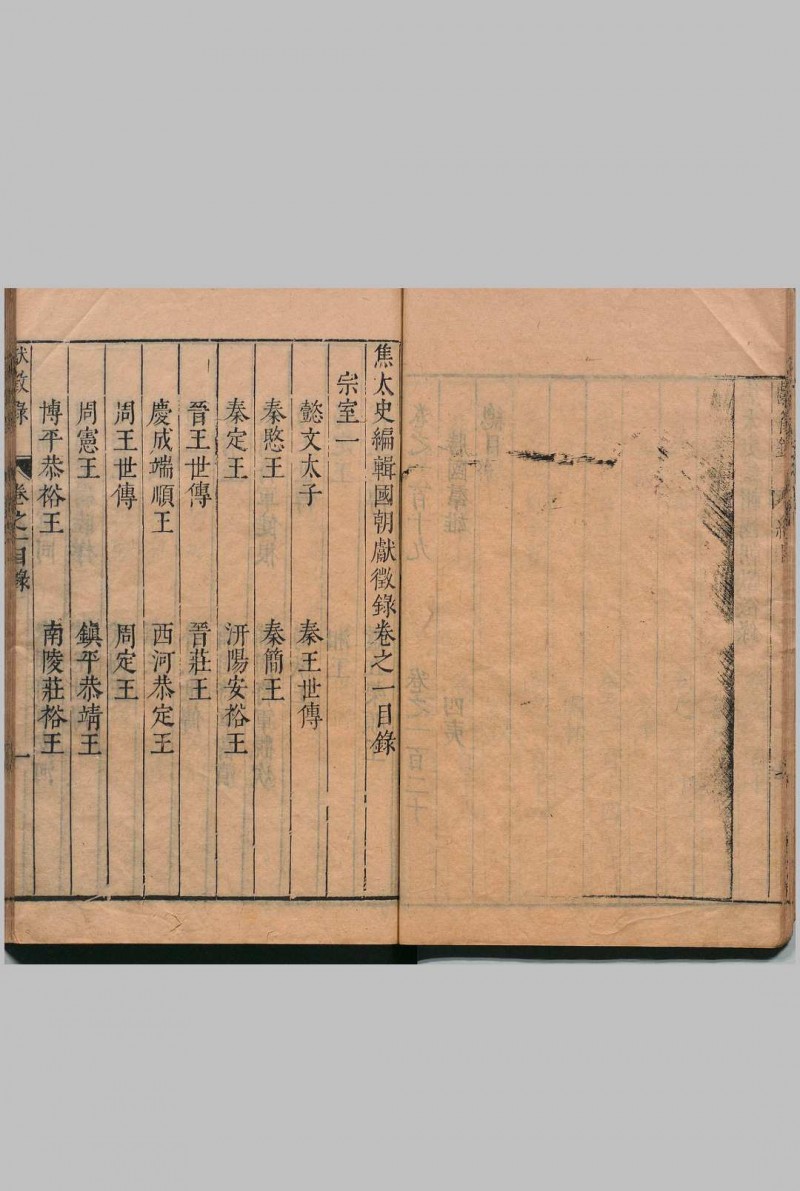 焦太史編輯國朝獻徵錄卷之一目錄
宗室一
懿文太子 秦王世傳
秦愍王 秦簡王
秦定王 汧陽安裕王
晉王世傳 晉莊王
慶成端順王 西河恭定王
周王世傳 周定王
周憲王 鎮平恭靖王
博平恭裕王 南陵莊裕王
獻徵錄 卷之一目錄 一